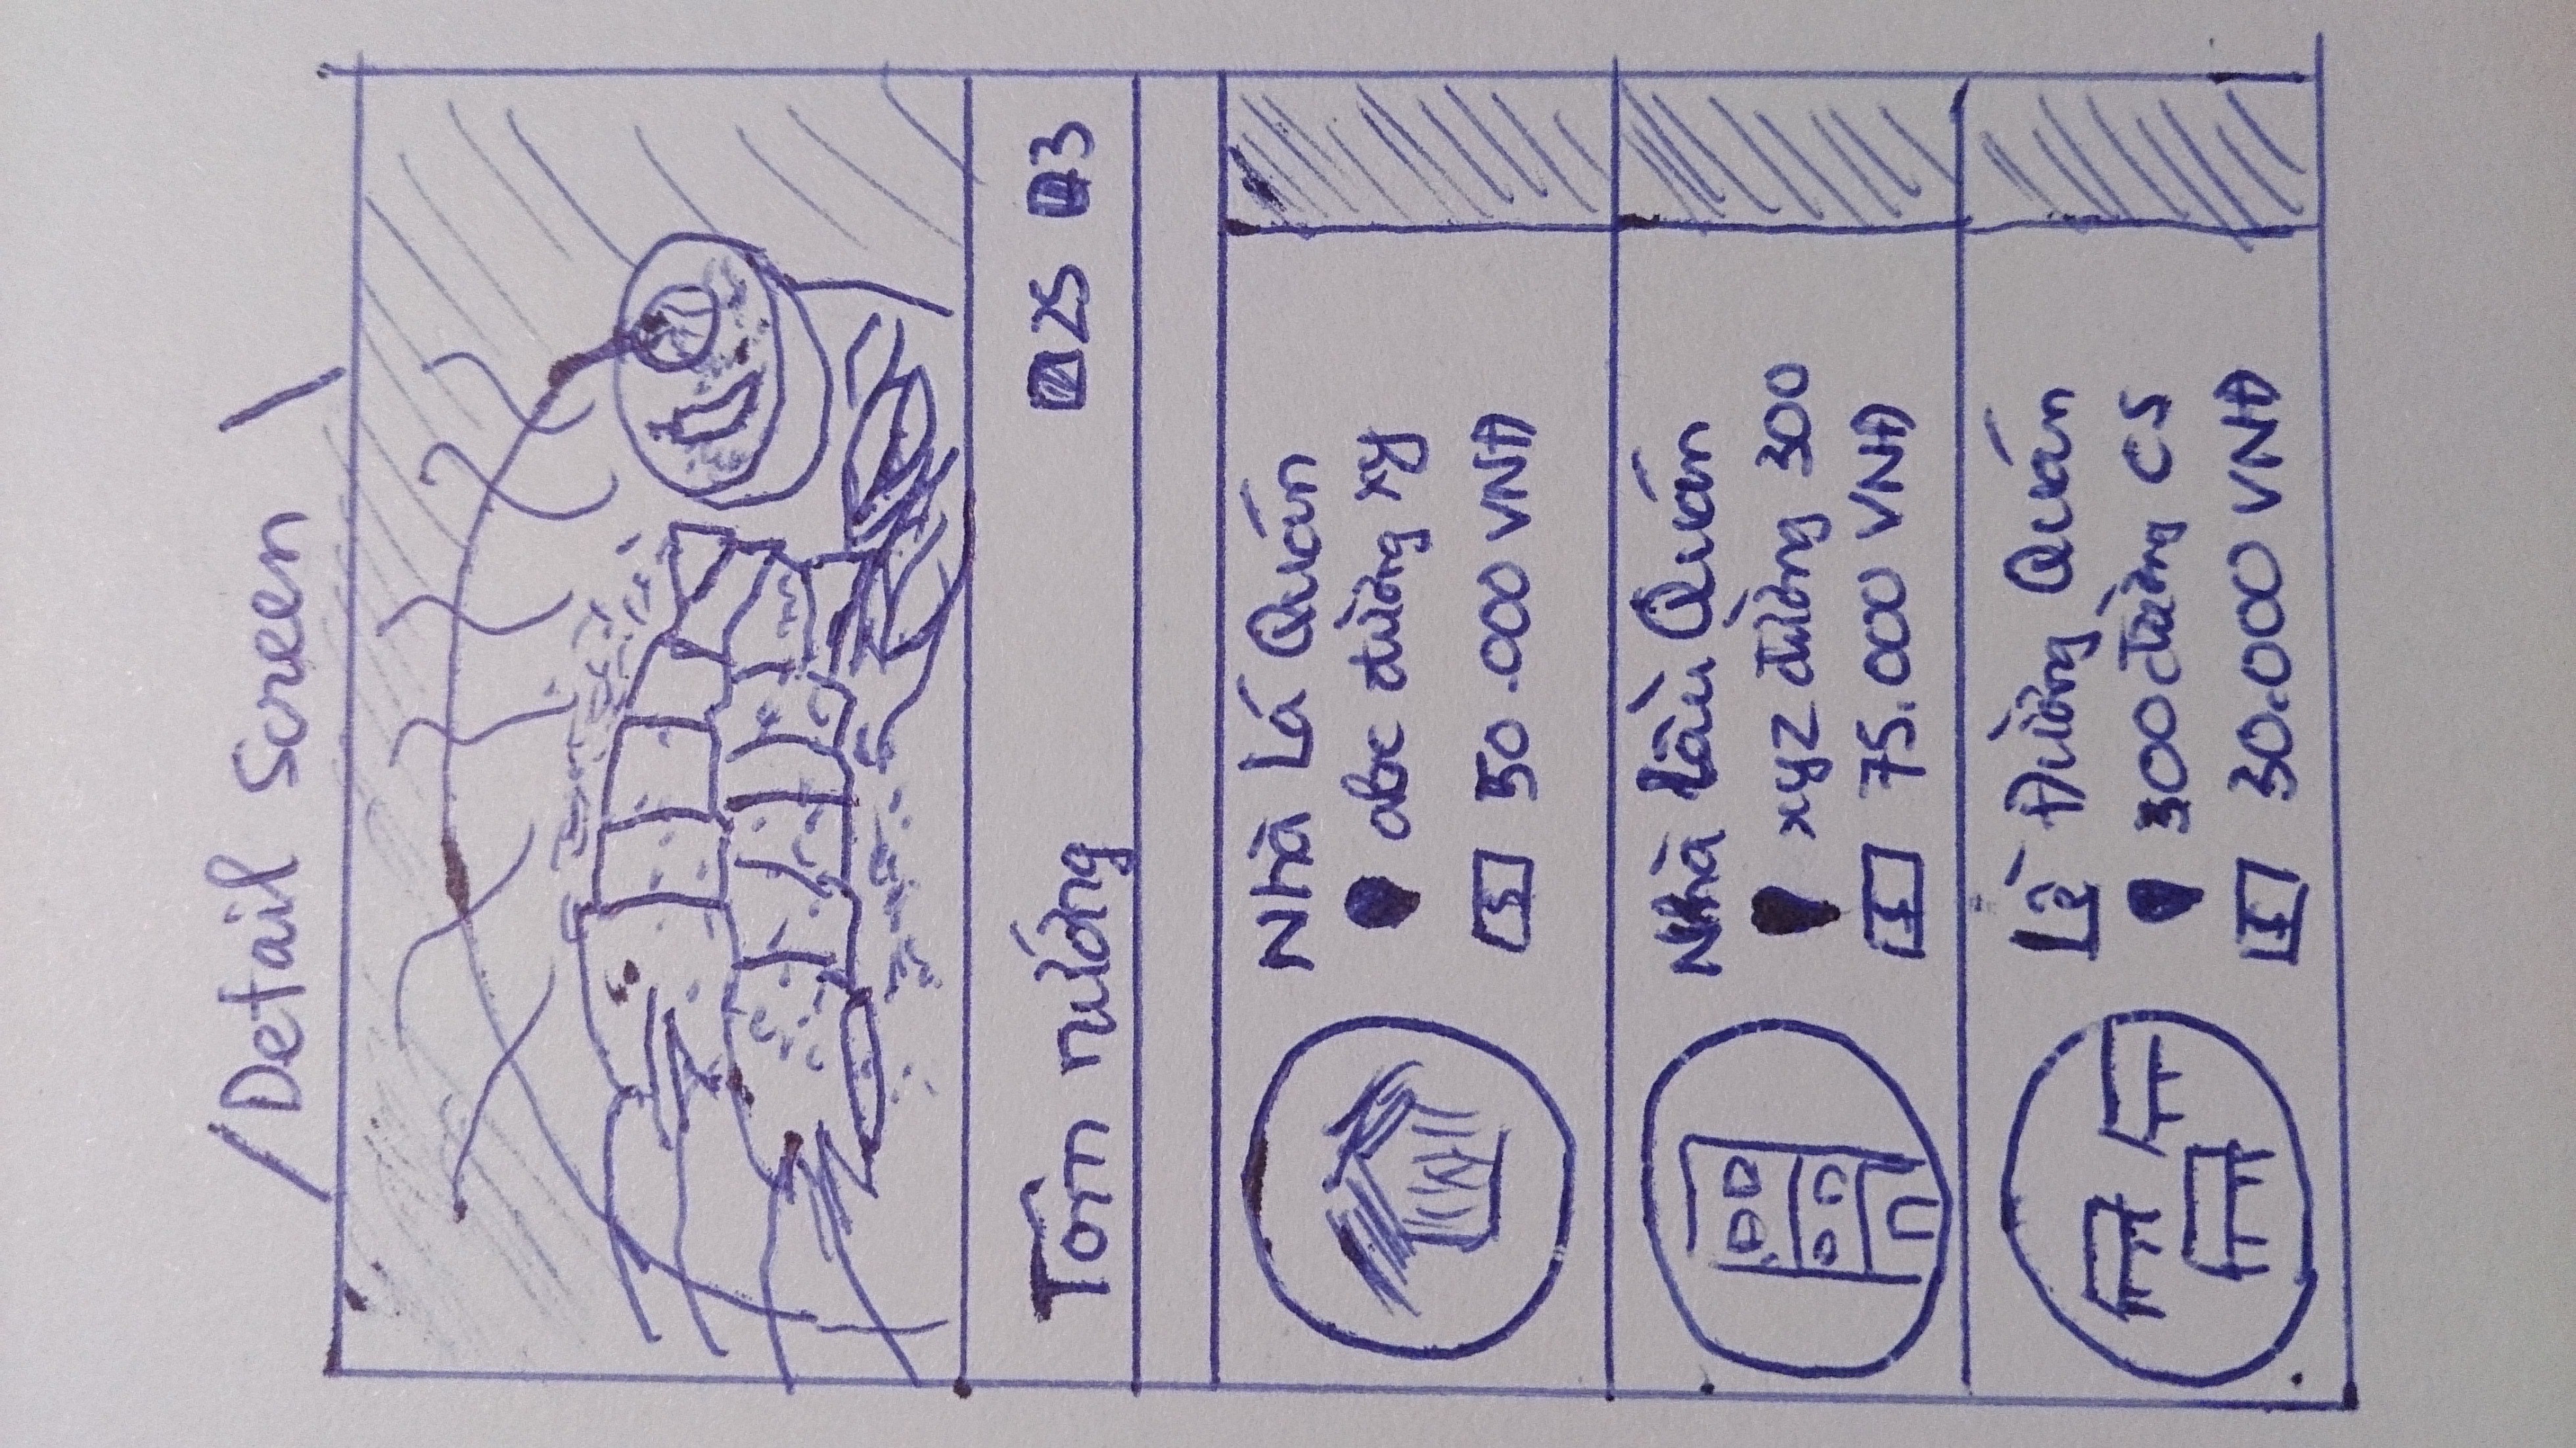 Detail Screen
Tôm nướng 25 3
Nhà Lá Quán
abc đường xy
$ 50.000 VNĐ
Nhà Lầu Quán
xyz đường 300
$ 75.000 VNĐ
Lề Đường Quán
300 đường CS
$ 30.000 VNĐ